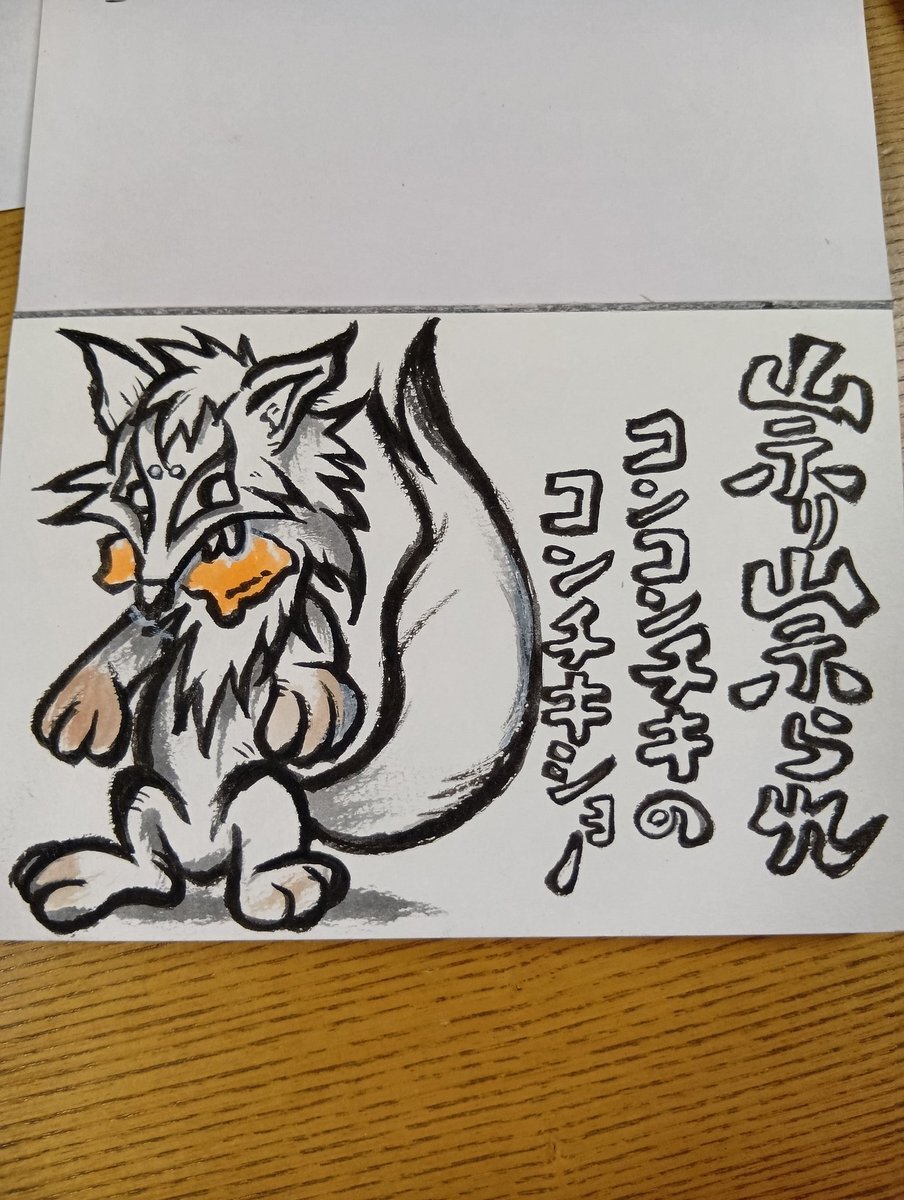 祟り祟られ
コンコンチキの
コンチキショー